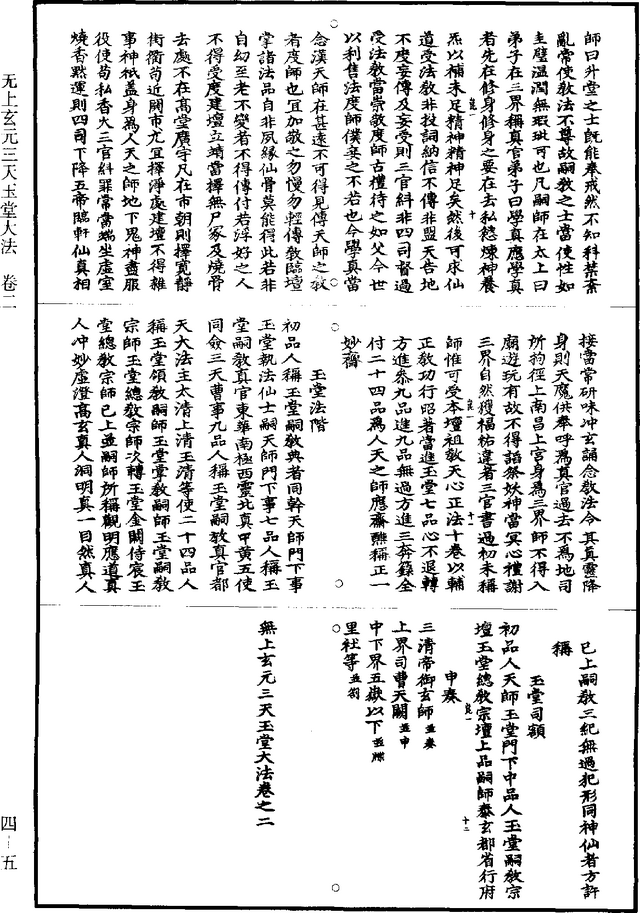 无上玄元三天玉堂大法 卷二
師曰升堂之士既能奉戒然不知科禁紊
亂常使敎法不尊故嗣敎之士當使性如
圭璧溫潤無瑕玼可也凡嗣師在太上曰
弟子在三界稱真官弟子曰學真應學真
者先在修身修身之要在去私慾煉神養
炁以補未足精神精神足矣然後可求仙
道受法敎非投詞納信不傳非盟天告地
不度妄傳及妄受則三官糾非四司督過
受法敎當崇敬度師古禮待之如父今世
以利售法度師僕妾之不若也今學真當
念漢天師在甚遠不可得見傳天師之敎
者度師也宜加敬之勿慢勿輕傳敎臨壇
掌諸法品自非夙緣仙骨莫能得此若非
自幼至老不變者不得傳付若浮好之人
不得受度建壇立靖當擇無尸冢及燒骨
去處不在高堂廣宇凡在市朝則擇寬靜
街衢苟近闤市尤宜擇淨處建壇不得雜
事神祇蓋身爲人天之師地下鬼神盡服
役使苟私香火三官糾罪常當端坐虛室
燒香默運則四司下降五帝臨軒仙真相
接當常研味冲玄誦念敎法令其真靈降
身則天魔供奉呼爲真官過去不爲地司
所拘徑上南昌上宮身爲三界師不得入
廟遊玩有故不得諂祭妖神當冥心禮謝
三界自然獲福祐違者三官書過初未稱
師惟可受本壇祖敎天心正法十卷以輔
正敎功行昭著當進玉堂七品心不退轉
方進叅九品進九品無過方進三奔籙全
付二十四品爲人天之師應齋醮稱正一
妙齋
玉堂法階
初品人稱玉堂嗣敎典者同幹天師門下事
玉堂執法仙士嗣天師門下事七品人稱玉
堂嗣敎真官東華南極西靈北真中黃五使
同僉三天曹事九品人稱玉堂嗣敎真官都
天大法主太清上清玉清等使二十四品人
稱玉堂領敎嗣師玉堂掌敎嗣師玉堂嗣敎
宗師玉堂總敎宗師次轉玉堂金闕侍宸玉
堂總敎宗師已上並嗣師所稱觀明應道真
人冲妙虛澄高玄真人洞明真一自然真人
已上嗣敎三紀無過犯形同神仙者方許
稱
玉堂司額
初品人天師玉堂門下中品人玉堂嗣敎宗
壇玉堂總敎宗壇上品嗣師泰玄都省行府
申奏
三清帝御玄師並奏
上界司曹天闕並申
中下界五嶽以下並牒
里社等並劄
無上玄元三天玉堂大法卷之二
四-五